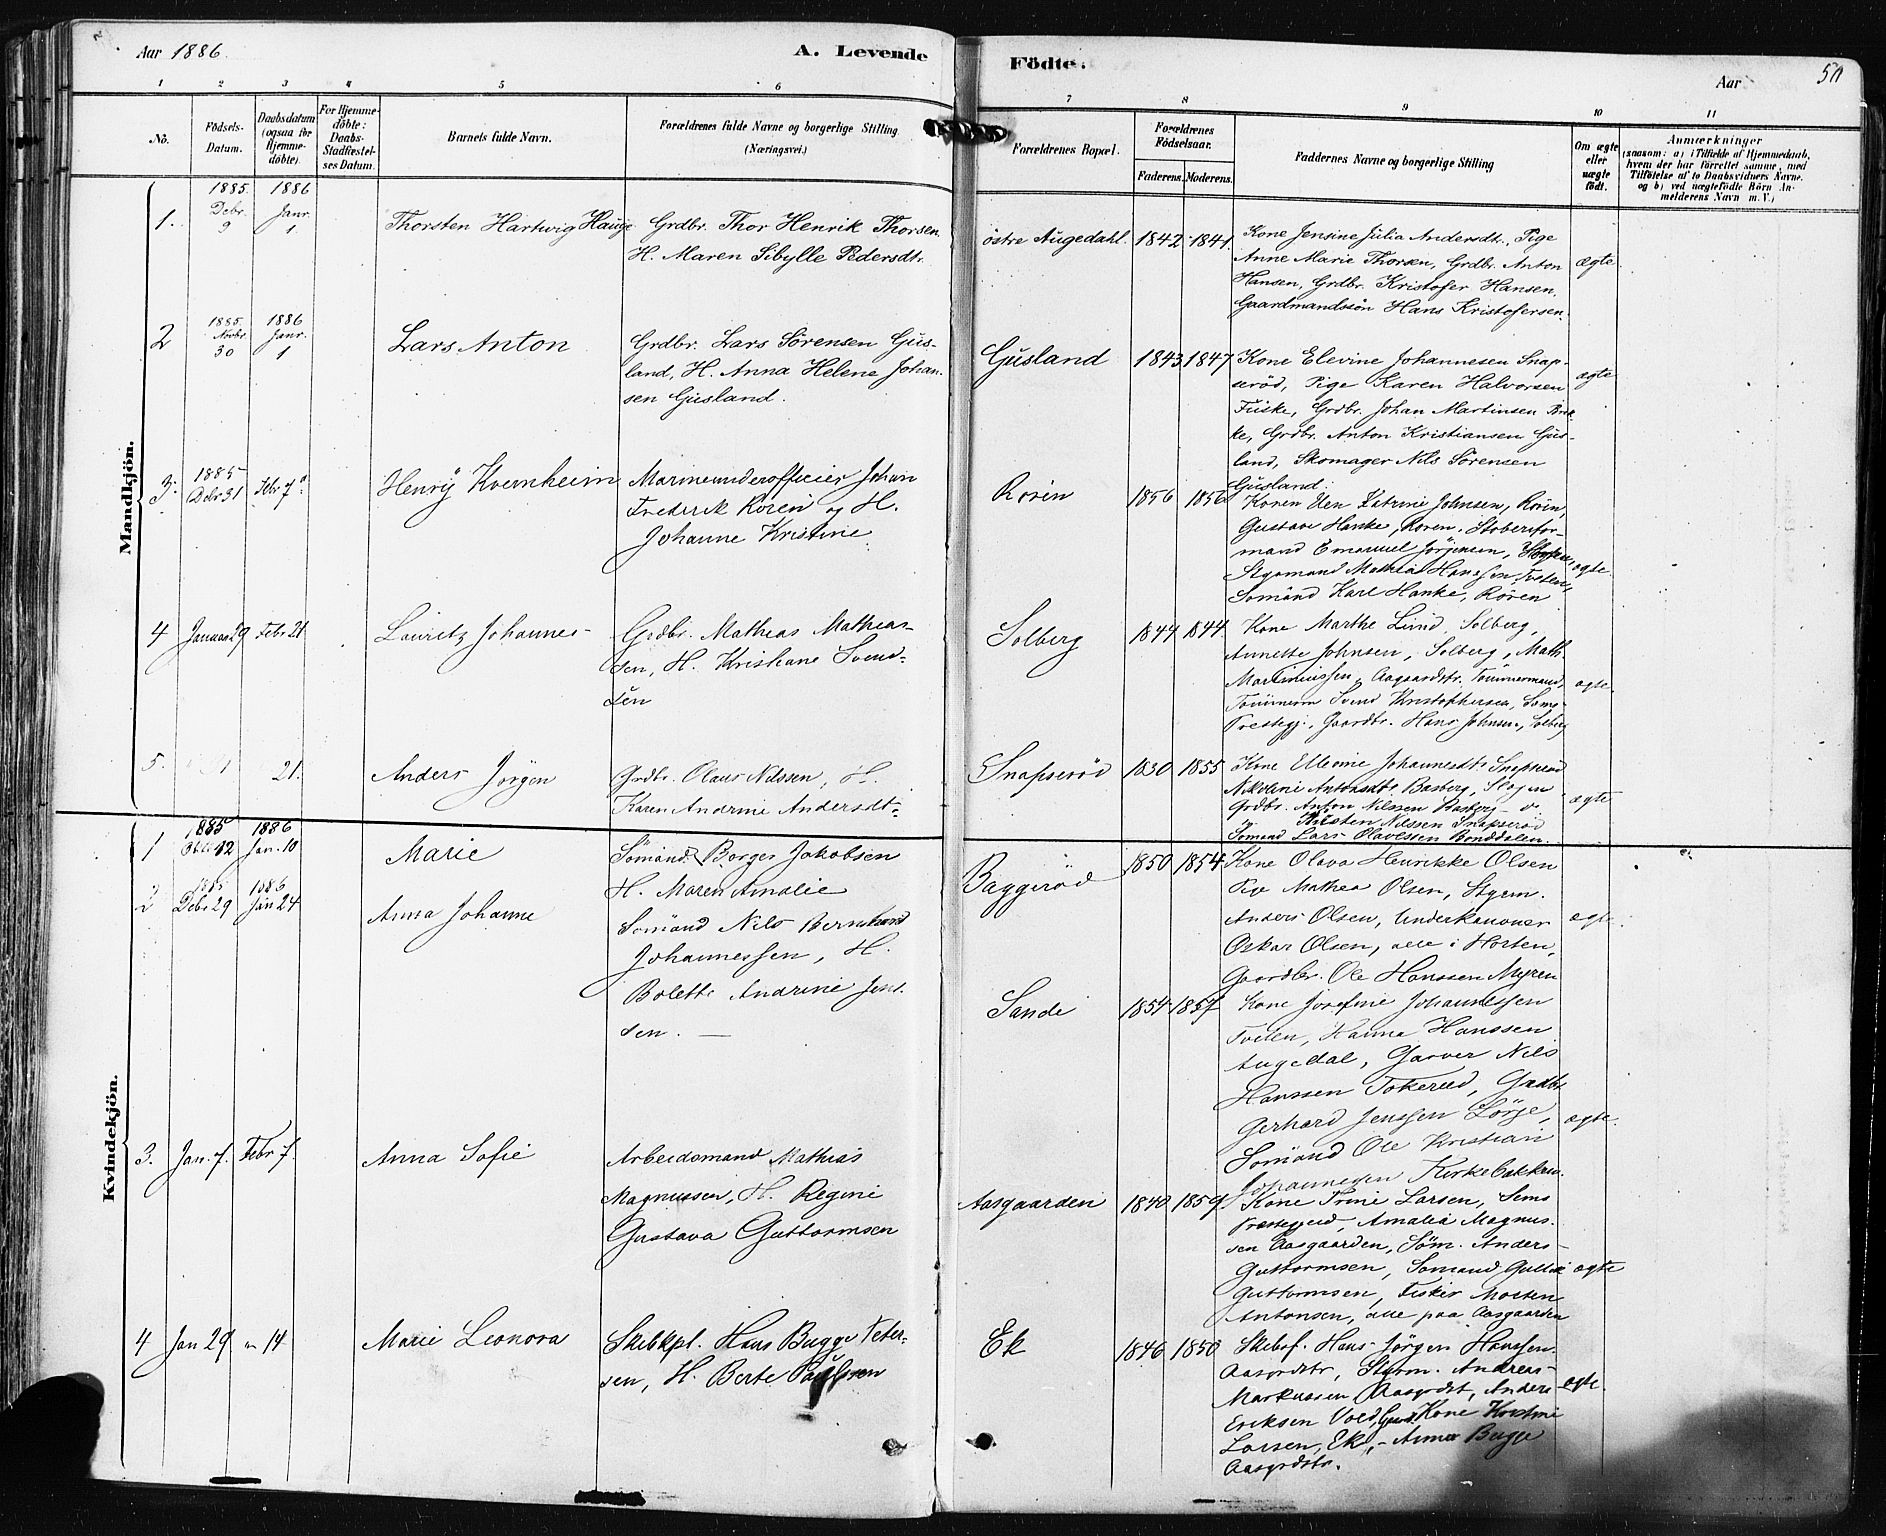 Aar 1886.
A. Levende
Födte.
Aar
50
1
2
3
4
5
6
7
8
9
10
11
No.
Födsels-
Datum.
Daabsdatum
(ogsaa for
Hjemme-
döbte).
For Hjemme-
döbte:
Daabs-
Stadfæstel-
ses Datum.
Barnets fulde Navn.
Forældrenes fulde Navne og borgerlige Stilling
(Næringsvei.)
Forældrenes Bopæl.
Forældrenes
Födselsaar.
Faderens.
Moderens.
Faddernes Navne og borgerlige Stilling
Om ægte
eller
uægte
födt.
Anmærkninger
(saasom: a) i Tilfælde af Hjemmedaab,
hvem der har forrettet samme, med
Tilföielse af to Daabsvidners Navne.
og b) ved uægtefödte Börn An-
melderens Navn m. V.)
Mandkjön.
1.
1885.
Debr.
9
1886
Janr.
1
Thorsten Hartwig Hauge
Grdbr. Thor Henrik Thorsen
H. Maren Sibylle Pedersdtr.
östre Augedahl.
1842
1841.
Kone Jensine Julia Andersdt., Pige
Anne Marie Thorsen, Grdbr. Anton
Hansen, Grdbr. Kristofer Hansen,
Gaardmandssön Hans Kristofersen.
ægte
2
1885.
Novbr.
30
1886
Janr.
1
Lars Anton
Grdbr. Lars Sörensen Gus-
land, H. Anna Helene Johan-
sen Gusland.
Gusland
1843
1847
Kone Elevine Johannesen Snap-
seröd, Pige Karen Halvorsen
Fuske, Grdbr. Johan Martinsen
ke, Grdbr. Anton Kristiansen Gus-
land, Skomager Nils Sörensen
Gusland.
ægte
3.
1885
Debr 31
Febr 7
Henrÿ Kvernheim
Marineunderofficier Johan
Frederik Roren og H.
Johanne Kristine
Rorén
1856
1856
Konen Petrine Johnsen, Roren
Gustava Hanke, Roren, Stoberifor-
mand Emanuel Jörgensen,
Stÿrmand Mathias Hanssen
Sömand Karl Hanke, Rören
ægte.
4
Januar 29
Febr 21
Lauritz Johannes
Grdbr. Mathias Mathias-
sen, H. Kristiane Svend-
sen
Solberg
1844
1844
Kone Marthe Lund, Solberg,
Annette Johnsen, Solberg, Math.
Martiniussen, Aagaardstr. Tömmermand,
Tömmerm Svend Kristophersen, Sems
Prestegj., Gaardbr. Hans Johnsen, Solberg
ægte.
5.
21.
Anders Jörgen
Grdbr. Olaus Nilssen, H.
Karen Andrine Andersdt.
Snapseröd
1830
1855
Kone Ellevine Johannesdtr Snapseröd
Nikoline Antonsdtr. Basberg, Slagen
Grdbr. Anton Nilssen Basberg
Nilssen Snapseröd
Sömand Lars Olavessen Bonddalen.
ægte
Kvindekjön.
1
1885
12
1886
Jan. 10
Marie
Sömand Borger Jakobsen
H. Maren Amalie
Baggeröd
1850
1854
Kone Olava Henrikke Olsen
Pige Mathea Olsen, Stÿrm.
Anders Olsen, Underkanoner
Oskar Olsen, alle i Horten,
Gaardbr. Ole Hanssen Myren
ægte
2
1885
Debr 29
1886
Jan 24
Anna Johanne
Sömand Nils Bernhard
Johannessen, H.
Bolette Andrine Jens.
sen.
Sande
1854
1857
Kone Josefine Johannessen
Tveten, Hanna Hanssen
Augedal, Garver Nils
Hanssen Tokerud, Grdbr
Gerhard Jenssen Sörje,
Sömand Ole Kristian
Johannessen Kirkebakken.
ægte.
3.
Jan. 7.
Febr 7.
Anna Sofie
Arbeidsmand Mathias
Magnussen, H. Regine
Gustava Guttormsen
Aasgaarden
1840
1859
Kone Trine Larsen, Sems
Præstegjeld, Amalia Magnus-
sen Aasgaarden, Söm. Anders
Guttormsen, Sömand Gullik
Guttormsen, Fisker Morten
Antonsen, alle paa Aasgaarden
ægte
4
Jan 29
" 14
Marie Leonora
Skibkpt. Hans Bugge Peter-
sen, H. Berte Paulsen
Ek
1846
1850
Skibsf. Hans Jörgen Hanssen
Aasgrdstr, Styrm. Andreas
Markussen Aasgrdst, Anders
Eriksen Vold, Kone Kristine
Larsen, Ek, Anna Bugge
Aasgrdstr.
ægte.